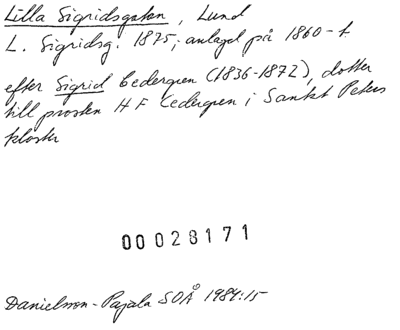 Lilla Sigridsgatan, Lund
L. Sigridsg. 1875; anlagd på 1860-t.
efter Sigrid Cedergren (1836-1872), dotter
till prosten H F Cedergren i Sankt Peters
kloster
00028171
Danielsson-Pajala SOÅ 1984:15